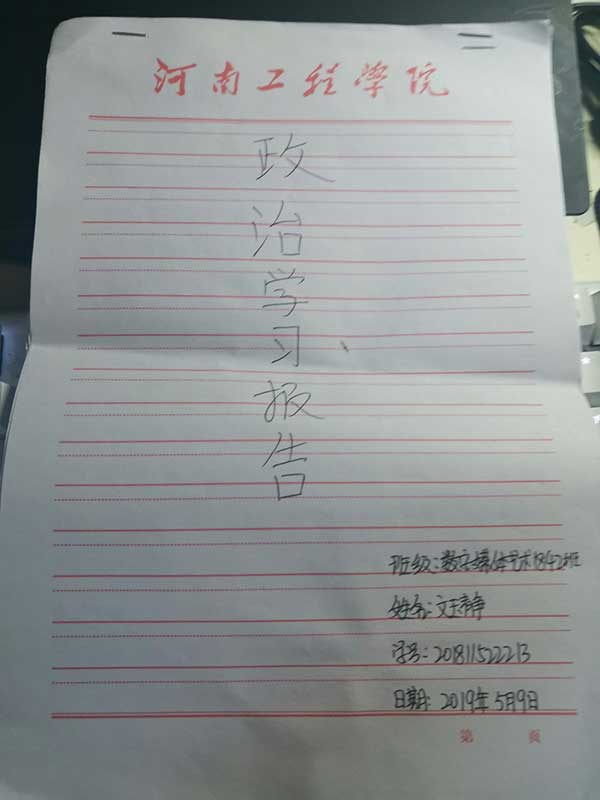 河南工程学院
政治学习报告
班级:数字媒体艺术1842班
姓名:文玉静
学号:201811522213
日期:2019年5月9日
第 页